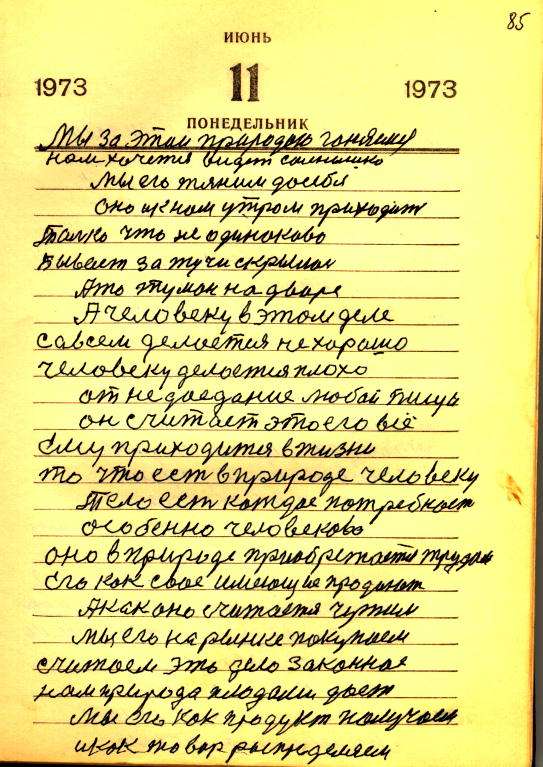 85
ИЮНЬ
1973 11 1973
ПОНЕДЕЛЬНИК
Мы за этой природою гоняемы
нам хочется видет солнышко
мы его тяним досебя
оно ик нам утром приходит
Толко что не одиноково
бывает за тучи скрылос
Ато туман на дворе
А человеку в этом деле
совсем делается не хорошо
человеку делается плохо
от не доедание любой пищи
он считает это его всё
Ему приходится в жизни
то что ест в природе человеку
Тело ест каждое потребност
особенно человеково
оно в природе приобретается трудом
Его как свое имеющие продают
А как оно считается чужим
мы его на рынке покупаем
считаем это дело законное
нам природа плодами дает
мы его как продукт получаем
и как товар роспределяем